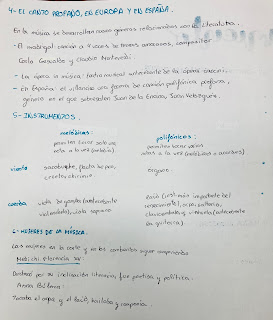 4- EL CANTO PROFANO, EN EUROPA Y EN ESPAÑA.
En la música se desarrollan nuevos géneros relacionados con la literatura.
· El madrigal canción a 4 voces de temas amorosos, compositor
Carlo Gesualdo y Claudio Monteverdi.
· La ópera u música teatro musical antecedente de la ópera
- En España: el villancico una forma de canción polifónica profana,
género en el que sobresalen Juan de la Encina, Juan Vásquez.
5- INSTRUMENTOS.
melódicos: polifónicos:
permiten tocar solo una permiten tocar varias
nota a la vez (melodía) notas a la vez (melodías o acordes)
viento sacabuche, flauta de pico, órgano
corneta, chirimía
cuerda viola da gamba (antecedente laúd (inst. más importante del
violonchelo), viola soprano renacimiento), arpa, salterio,
clavicordio y vihuela (antecedente
de guitarra)
6- MUJERES DE LA MÚSICA.
Las mujeres en la corte y en los conventos siguen componiendo
Medici: Florencia XV.
Destacó por su inclinación literaria, fue poetisa y política.
Anna Bolena:
Tocaba el arpa y el laúd, bailaba y componía.